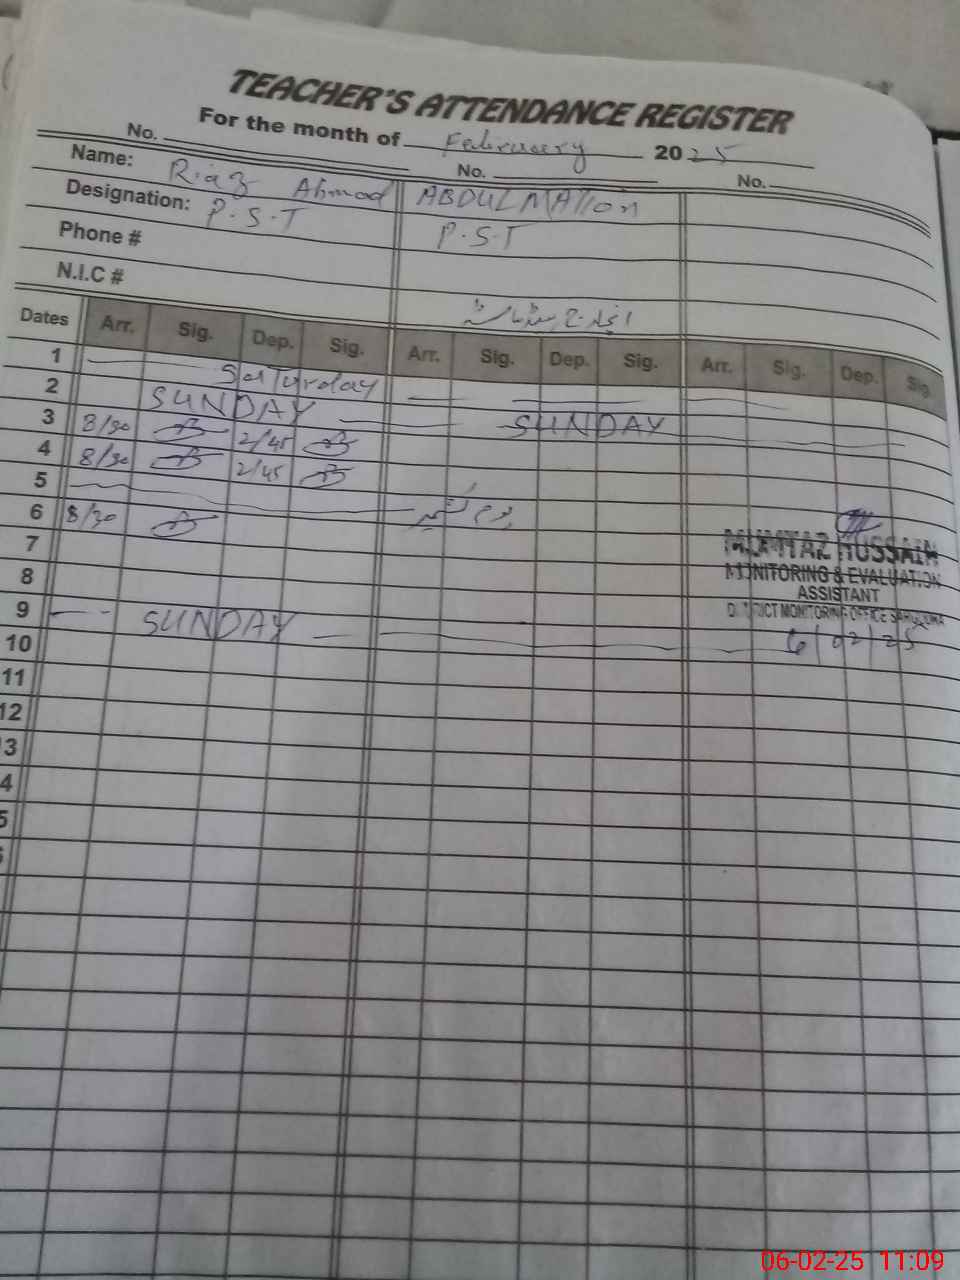 TEACHER'S ATTENDANCE REGISTER
For the month of February 2025
No. No. No.
Name: Riaz Ahmad ABDUL
Designation: P.S.T P.S.T
Phone #
N.I.C #
Dates Arr. Sig. Dep. Sig. Arr. Sig. Dep. Sig. Arr. Sig. Dep. Sig.
1 Saturday
2 SUNDAY SUNDAY
3 8/30 2/45
4 8/30 2/45
5 یوم کشمیر
6 8/30
7
8
9 SUNDAY
10
11
12
3
4
5
MUMTAZ HUSSAIN
MONITORING & EVALUATION
ASSISTANT
DISTRICT MONITORING OFFICE
6/02/25
06-02-25 11:09